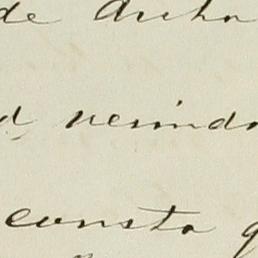 de dicha
d vecindo
consta q